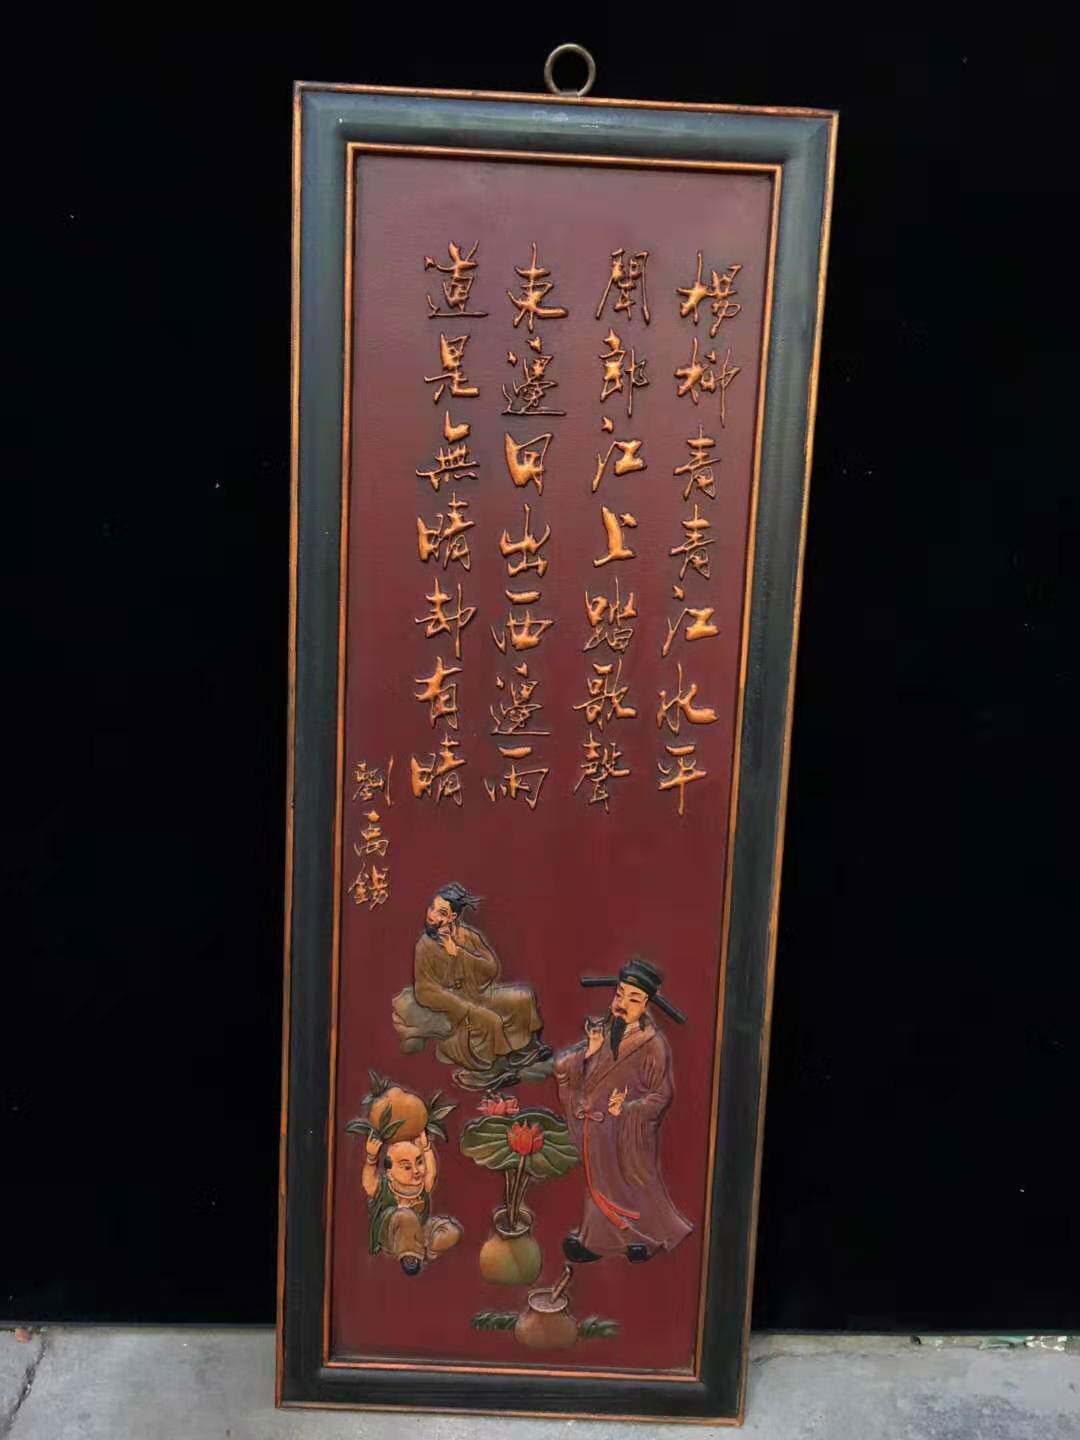 楊柳青青江水平
聞郎江上踏歌聲
東邊日出西邊雨
道是無晴却有晴
劉禹錫